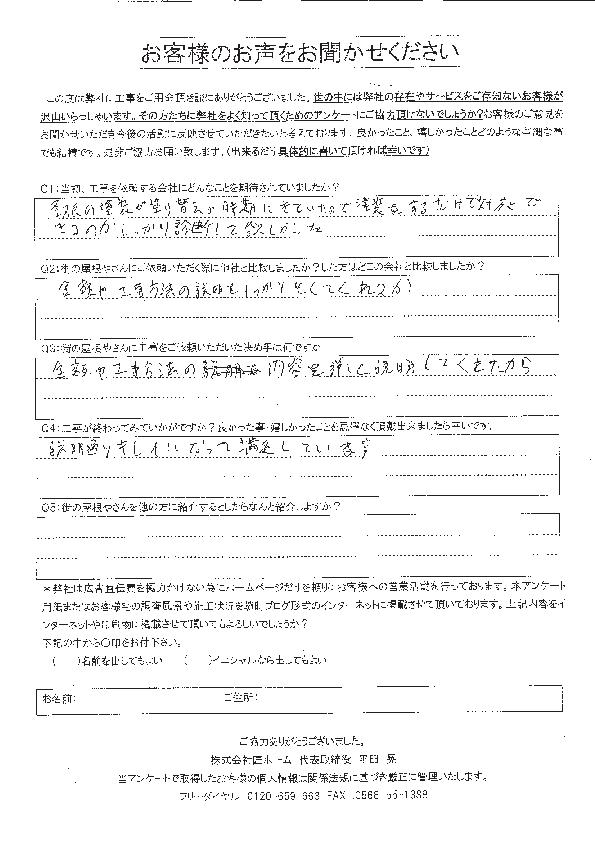 お客様のお声をお聞かせください
この度は弊社に工事をご用命頂き誠にありがとうございました。世の中には弊社の存在やサービスをご存知ないお客様が
沢山いらっしゃいます。その方たちに弊社をよく知って頂くためのアンケートにご協力頂けないでしょうか？お客様のご意見を
お聞かせいただき今後の活動に反映させていただきたいと考えております。良かったこと、嬉しかったことどのような
でも結構です。是非ご協力お願い致します。（出来るだけ具体的に書いて頂ければ幸いです）
Q1：当初、工事を依頼する会社にどんなことを期待されていましたか？
の塗装が塗り替えの時期にきていたので塗装をするだけで対応で
きるのかしっかり診断して欲しかった
Q2：街の屋根やさんにご依頼いただく際に他社と比較しましたか？した方はどこの会社と比較しましたか？
金額や工事方法の説明をわかりやすくしてくれるか
Q3：街の屋根やさんに工事をご依頼いただいた決め手は何ですか
金額や工事方法の内容を詳しく説明してくれたから
Q4：工事が終わってみていかがですか？良かった事・嬉しかったことを忌憚なく頂戴出来ましたら幸いです。
説明通りキレイになって満足しています
Q5：街の屋根やさんを他の方に紹介するとしたらなんと紹介しますか？
＊弊社は広告宣伝費を極力かけない為にホームページだけを頼りにお客様への営業活動を行っております。本アンケート
用紙またはお客様宅の調査風景や施工状況を随時ブログ形式のインターネットに掲載させて頂いております。上記内容をイ
ンターネットや印刷物に掲載させて頂いてもよろしいでしょうか？
下記の中から〇印をお付下さい。
（　　）名前を出してもよい　　（　　）イニシャルなら出してもよい
お名前：　　ご住所：
ご協力ありがとうございました。
株式会社匠ホーム　代表取締役　平田　晃
当アンケートで取得したお客様の個人情報は関係法規に基づき厳正に管理いたします。
フリーダイヤル　0120-659-663　FAX